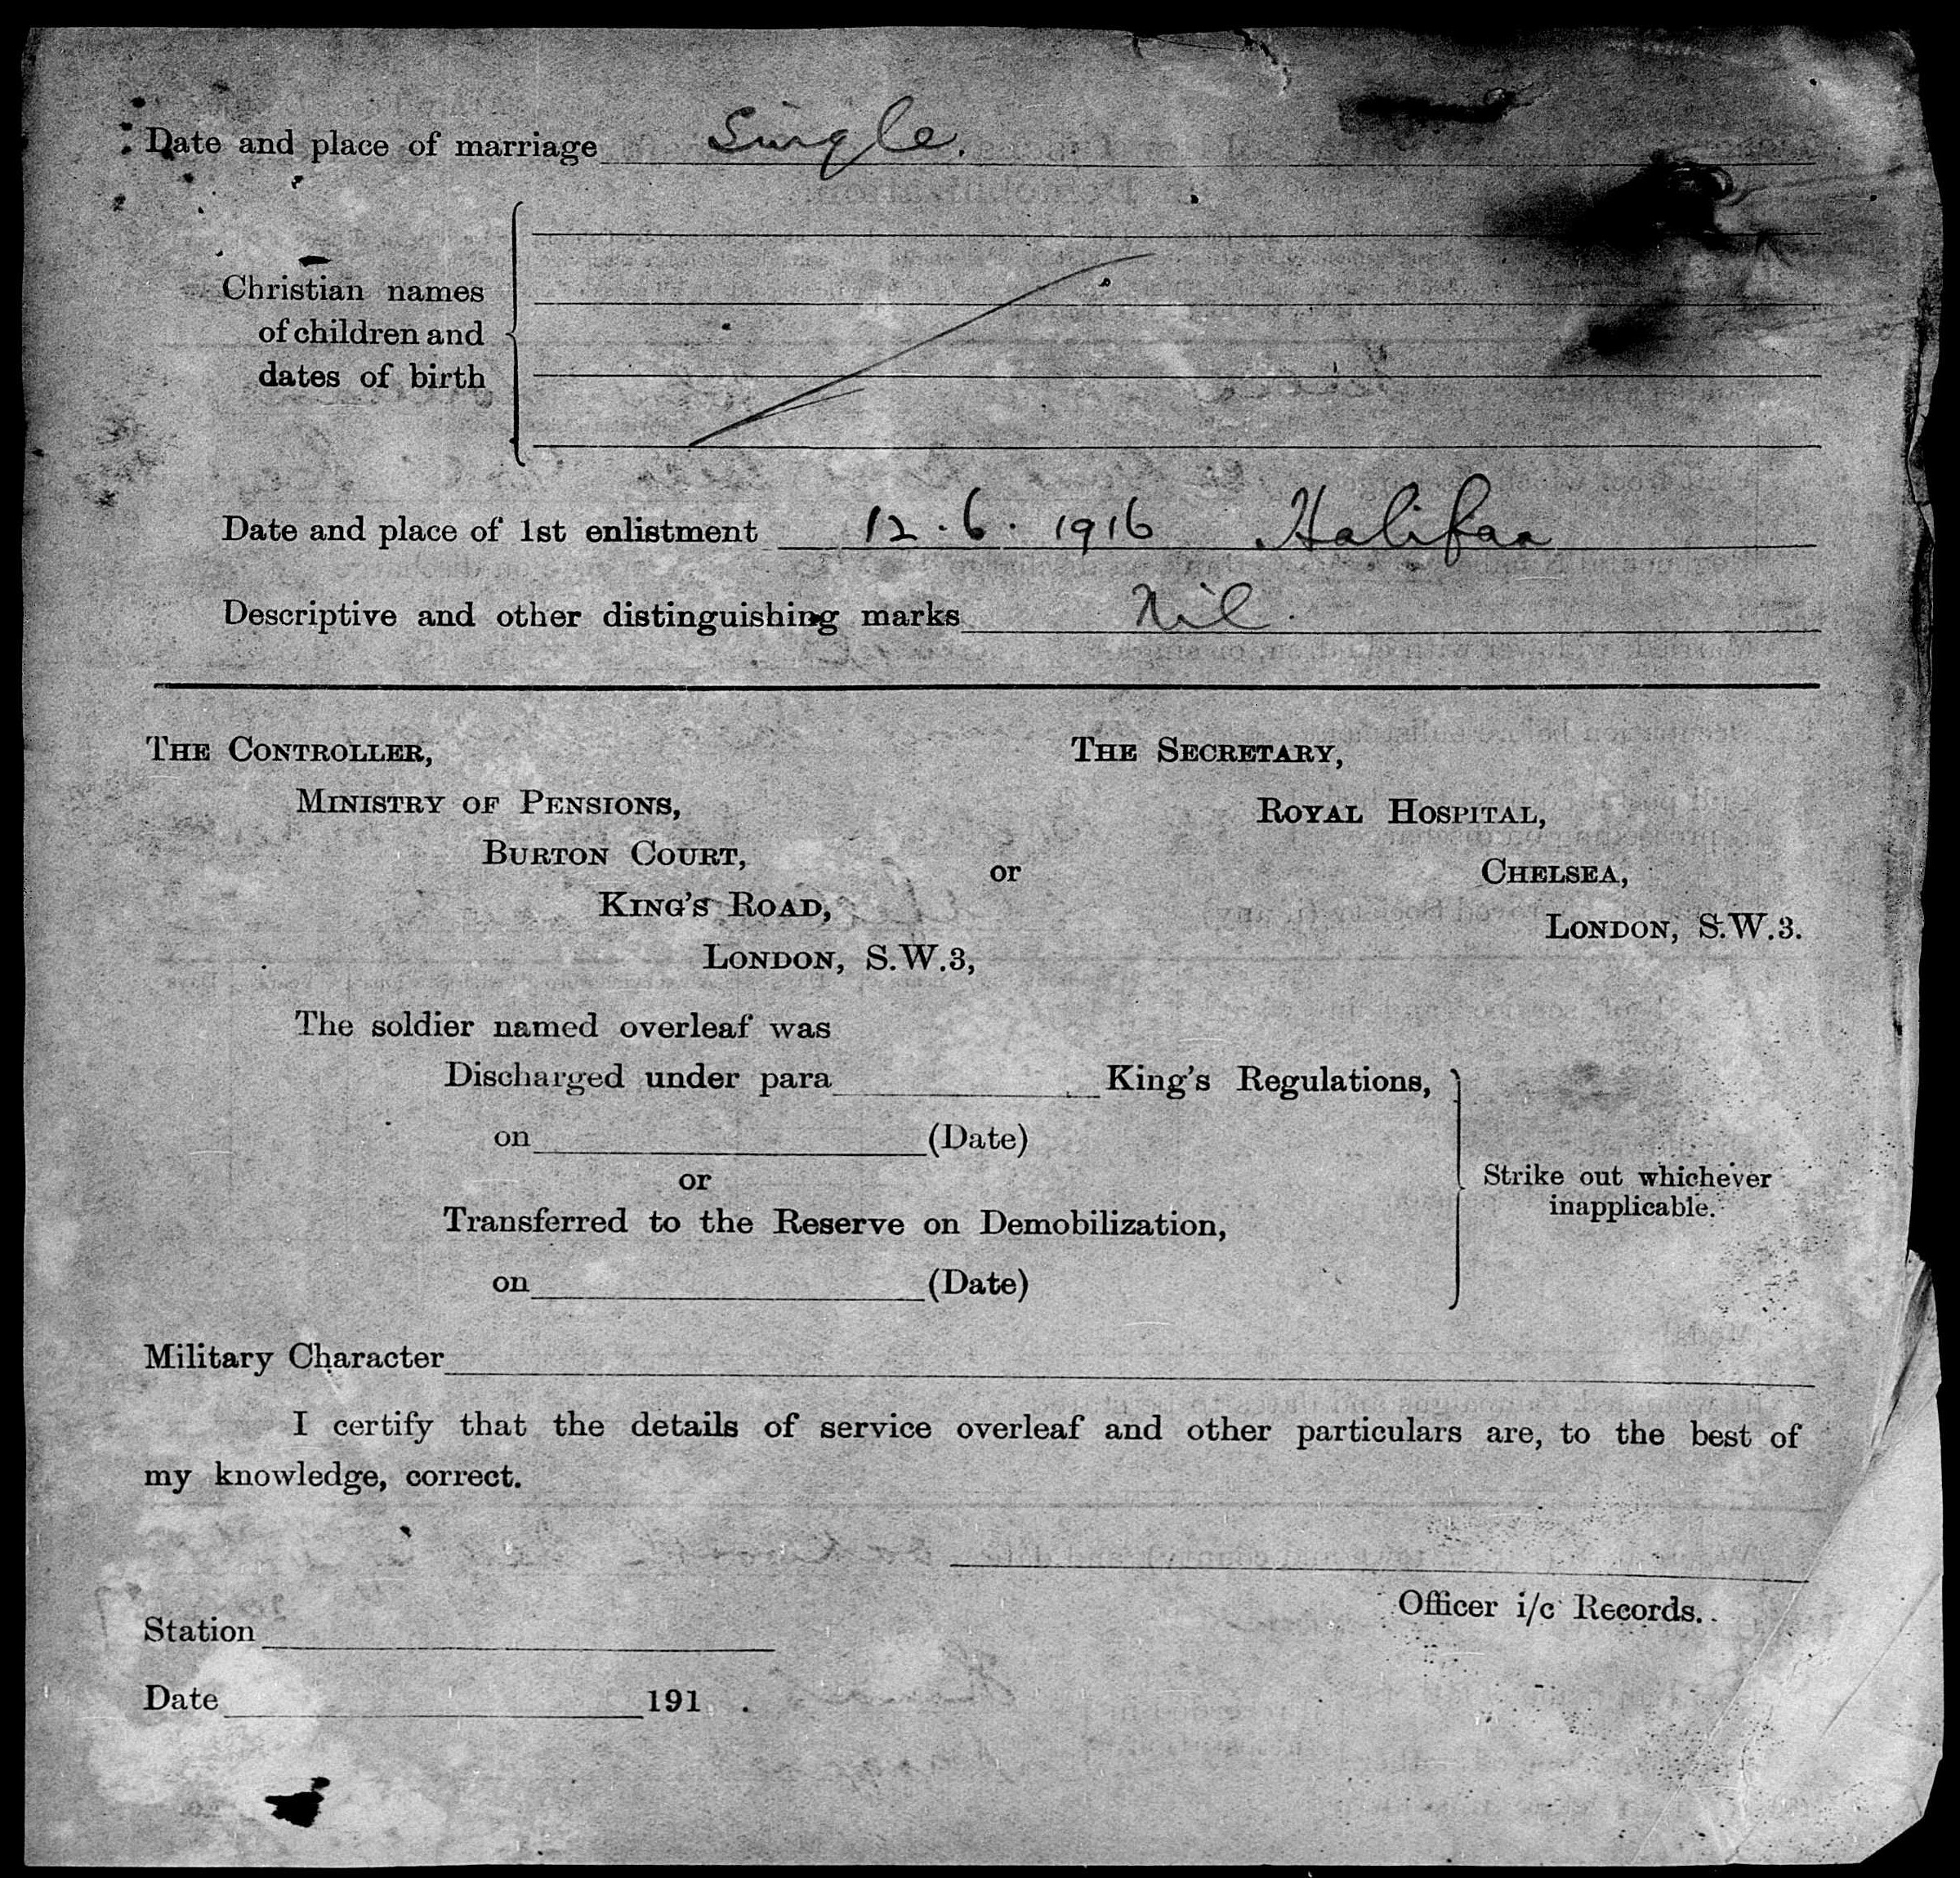 Date and place of marriage Single.
Christian names
of children and
dates of birth
Date and place of 1st enlistment 12.6.1916 Halifax
Descriptive and other distinguishing marks Nil.
THE CONTROLLER,
MINISTRY OF PENSIONS,
BURTON COURT,
KING'S ROAD,
LONDON, S.W.3,
or
THE SECRETARY,
ROYAL HOSPITAL,
CHELSEA,
LONDON, S.W.3.
The soldier named overleaf was
Discharged under para King's Regulations,
on (Date)
or
Transferred to the Reserve on Demobilization,
on (Date)
Strike out whichever
inapplicable.
Military Character
I certify that the details of service overleaf and other particulars are, to the best of
my knowledge, correct.
Officer i/c Records.
Station
Date 191 .